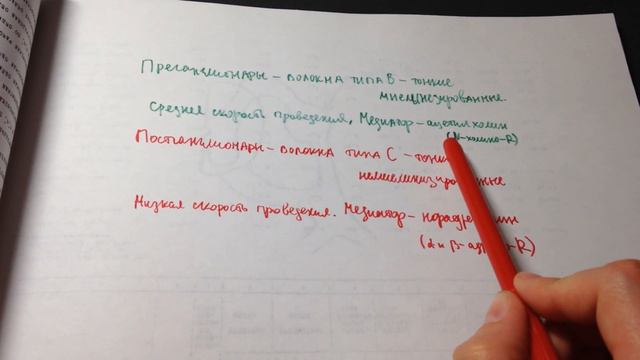 Преганглионары – волокна типа В – тонкие
миелинизированные.
Средняя скорость проведения. Медиатор – ацетилхолин
(N-холино-R)
Постганглионары – волокна типа С –
Низкая скорость проведения. Медиатор –
(α и β-